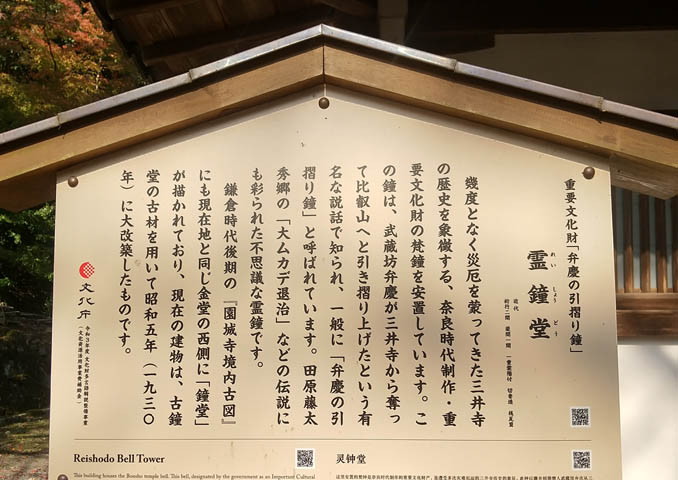 重要文化財「弁慶の引摺り鐘」
霊鐘堂
れい しょう どう
近代
桁行二間 梁間一間 一重裳階付 切妻造 桟瓦葺
幾度となく災厄を蒙ってきた三井寺
の歴史を象徴する、奈良時代制作・重
要文化財の梵鐘を安置しています。こ
の鐘は、武蔵坊弁慶が三井寺から奪っ
て比叡山へと引き摺り上げたという有
名な説話で知られ、一般に「弁慶の引
摺り鐘」と呼ばれています。田原藤太
秀郷の「大ムカデ退治」などの伝説に
も彩られた不思議な霊鐘です。
鎌倉時代後期の『園城寺境内古図』
にも現在地と同じ金堂の西側に「鐘堂」
が描かれており、現在の建物は、古鐘
堂の古材を用いて昭和五年（一九三〇
年）に大改築したものです。
文化庁
令和3年度 文化財多言語解説整備事業
（文化資源活用事業費補助金）
Reishodo Bell Tower
This building houses the Bonsho temple bell. This bell, designated by the government as an Important Cultural
灵钟堂